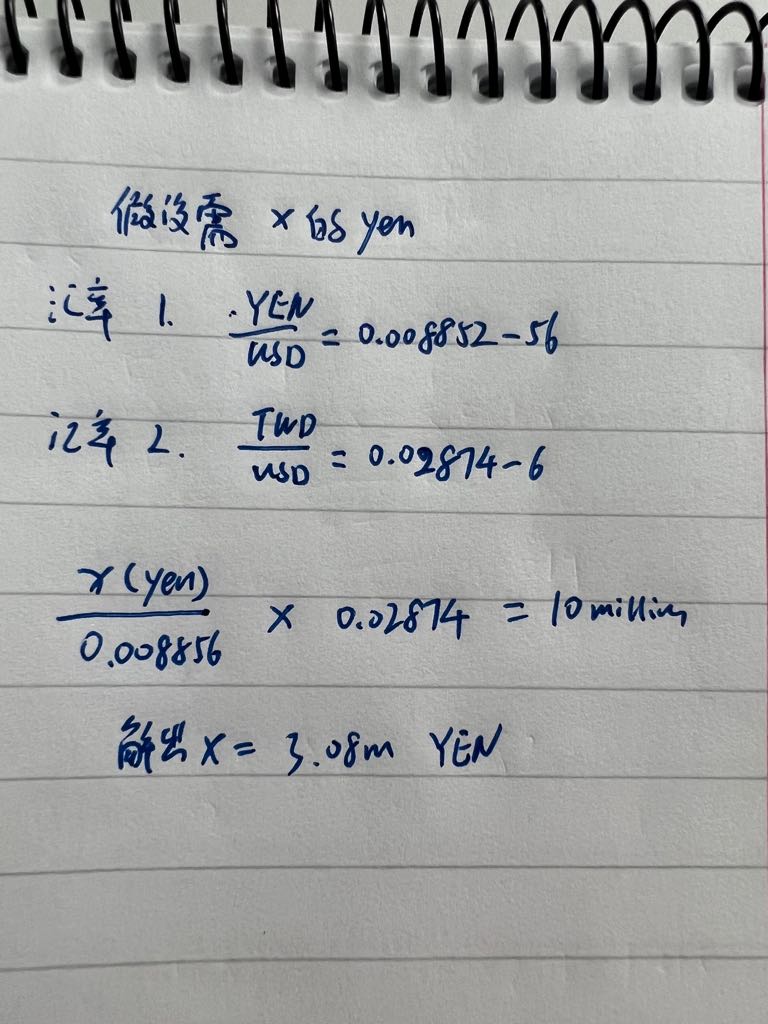 假设需 x 的 yen
汇率 1. YEN/USD = 0.008852-56
汇率 2. TWD/USD = 0.02874-6
x(yen)/0.008856 × 0.02874 = 10 million
解出 x = 3.08m YEN